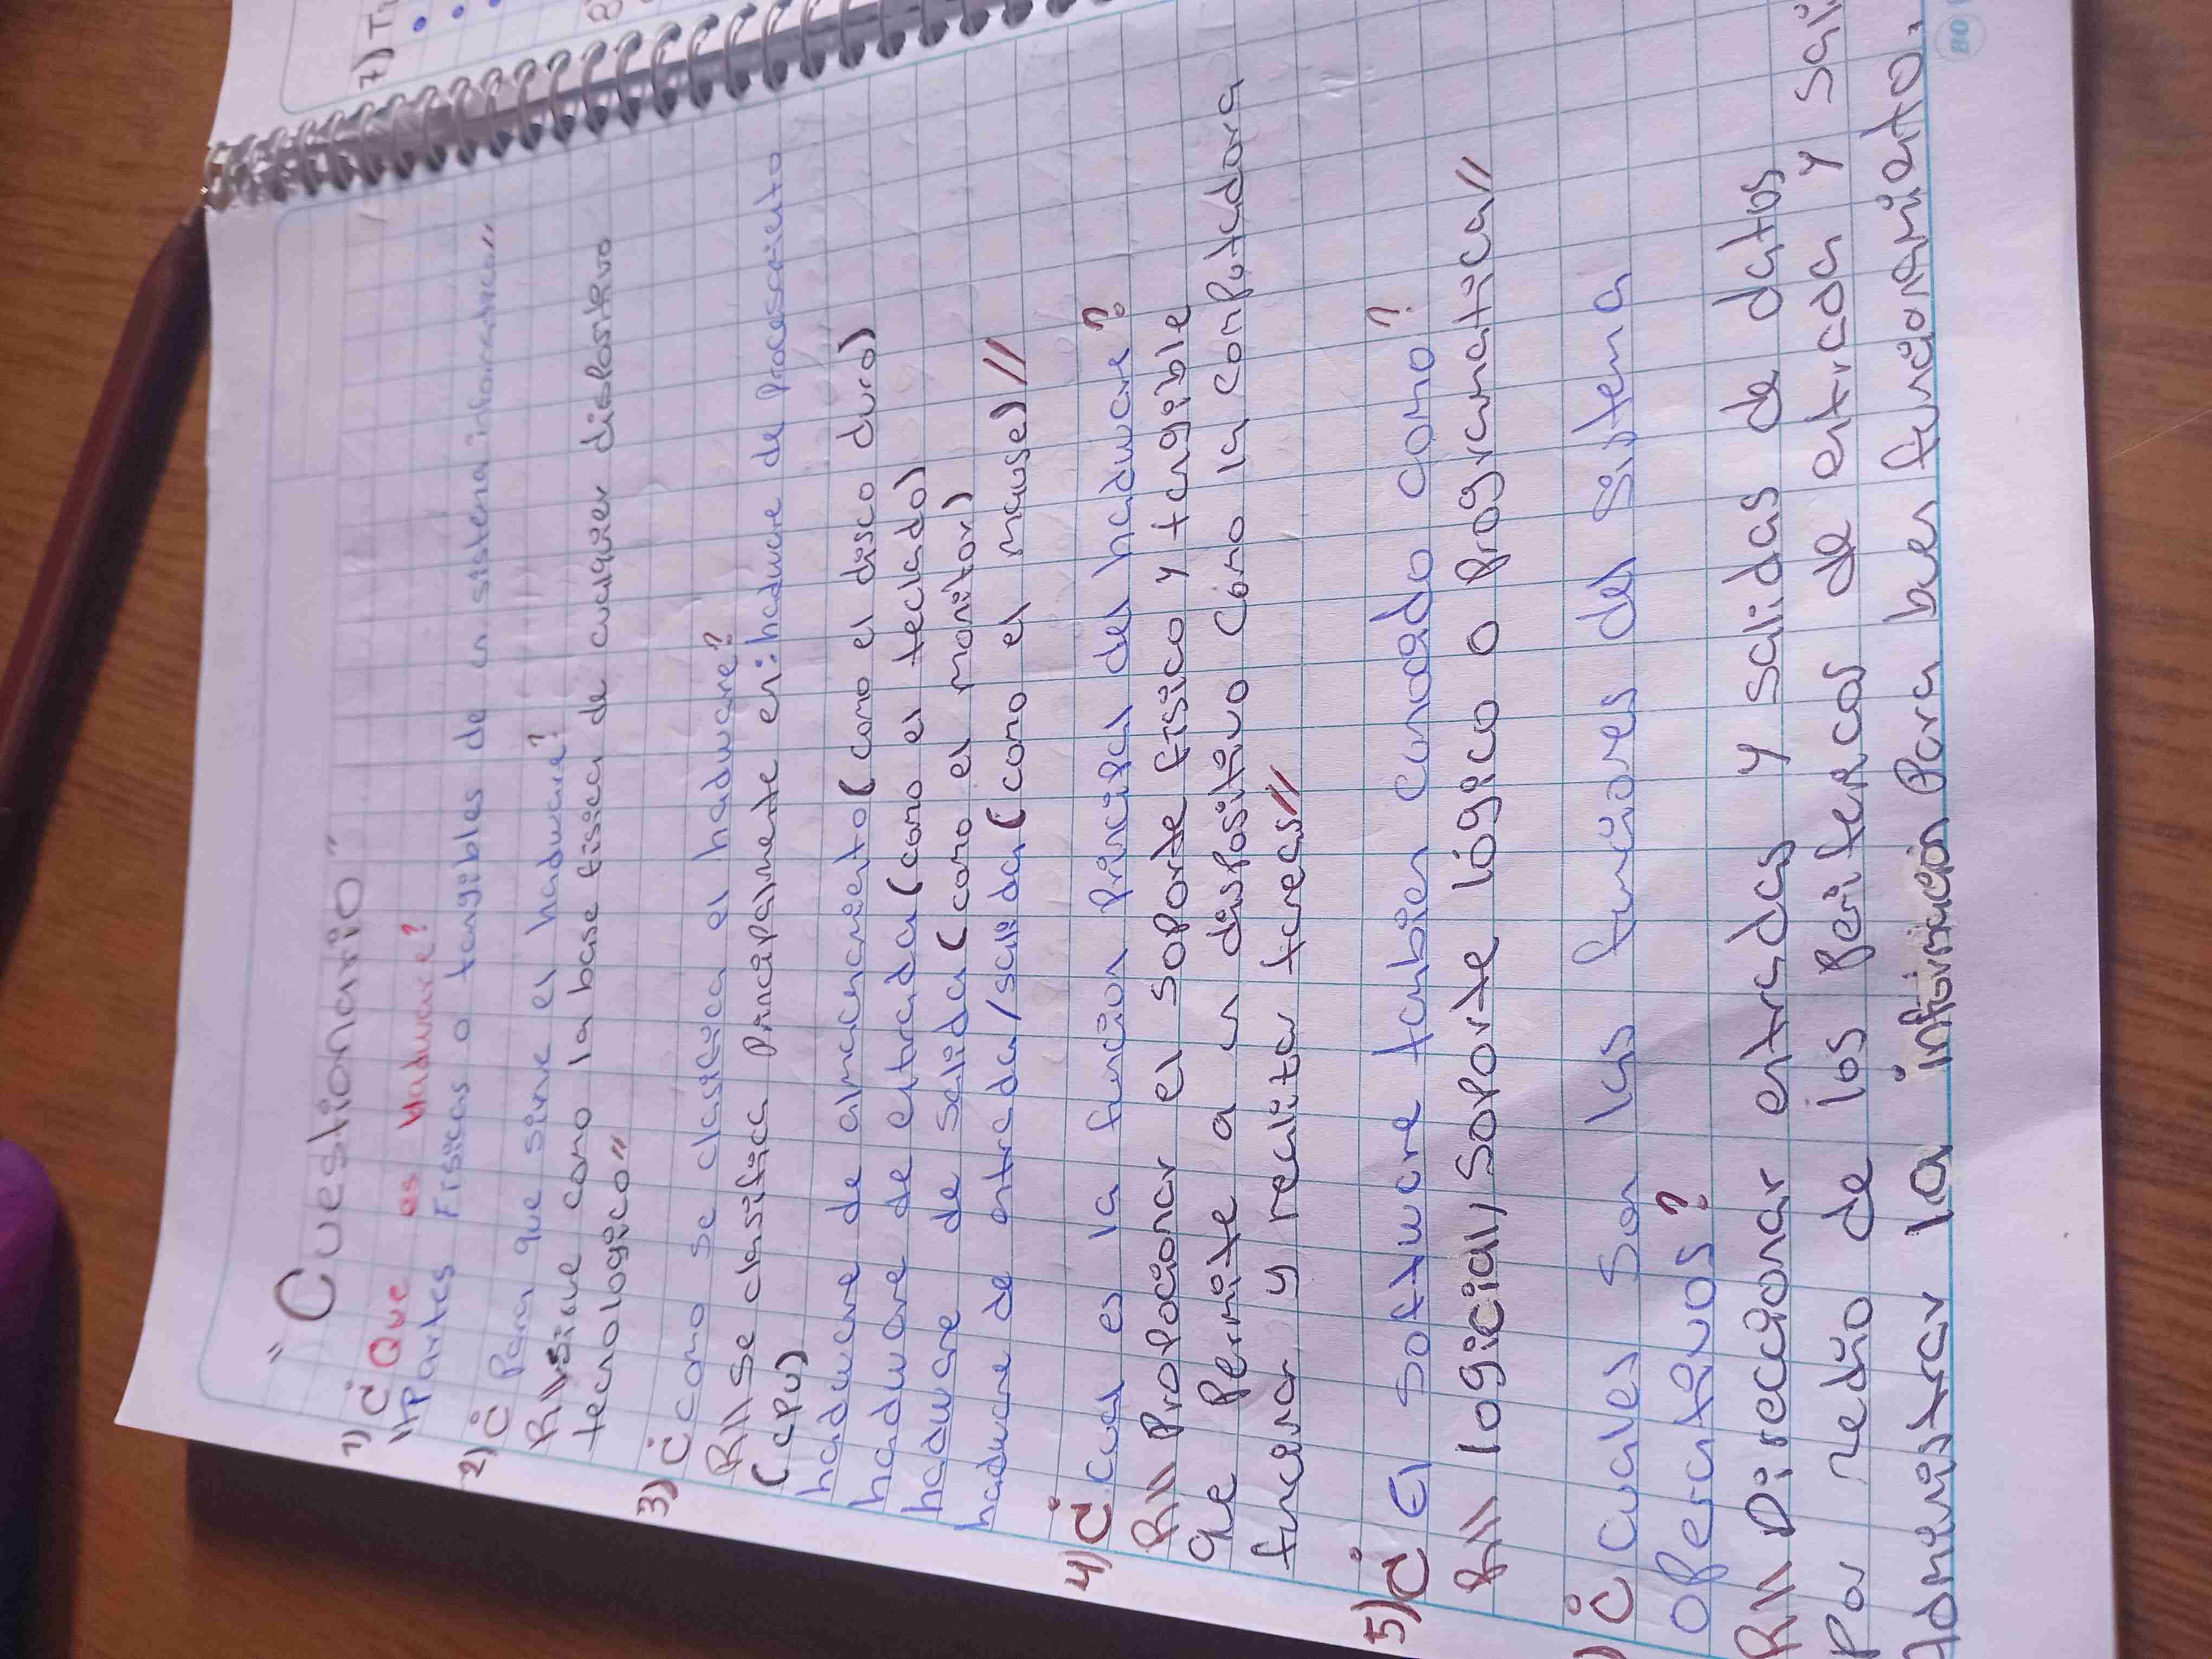 "Cuestionario"
1) ¿Que es Haduware?
11 Partes Fisicas o tangibles de un sistema informatico"
2) ¿Para que sirve el haduware?
R// sirve como la base fisica de cualquier dispositivo
tecnologico"
3) ¿como se clasifica el haduware?
R// se clasifica Principalmente en: haduware de Procesamiento
(CPU)
haduware de almacenamiento (como el disco duro)
haduware de entrada (como el teclado)
haduware de salida (como el monitor)
haduware de entrada/salida (como el mause)//
4) ¿cual es la funcion principal del haduware?
R// Propocionar el soporte fisico y tangible
que Permite a un dispositivo como la computadora
funcionar y realizar tareas//
5) ¿El software tambien conocido como?
R// logicial, soporte lógico o Programatica//
) ¿cuales son las funciones del sistema
operativos?
R// Direccionar entradas y salidas de datos
Por medio de los perifericos de entrada y sali
Administrar la información Para buen funcionamiento.
7)